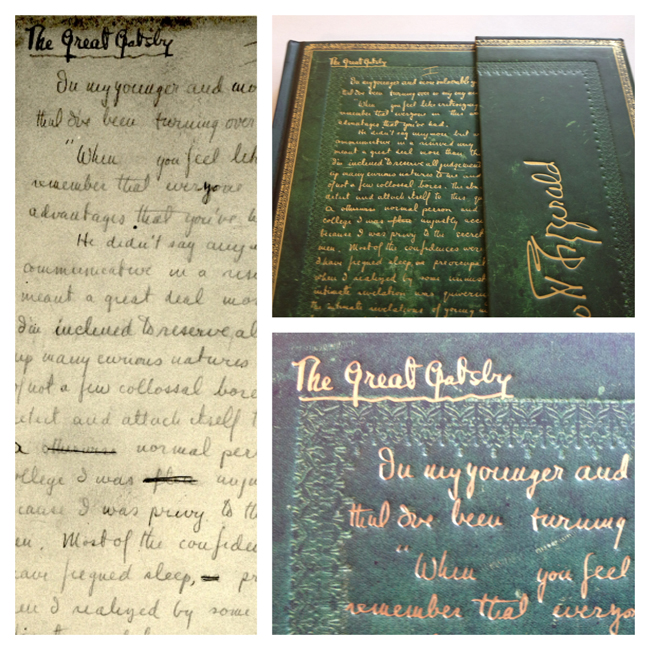 The Great Gatsby
In my younger and mo
that I've been turning over
"When you feel lik
remember that everyone
advantages that you've h
He didn't say any
communicative in a res
meant a great deal mo
I'm inclined to reserve al
up many curious natures
of not a few collossal bore
detect and attach itself t
a normal per
college I was unju
cause I was privy to th
en. Most of the confide
have fiegned sleep, pr
en I realized by some
The Great Gatsby
In my younger and more vulnerable y
that I've been turning over in my
When you feel like
remember that everyone in this
advantages that you've had.
He didn't say any more but
communicative in a reserved way
meant a great deal more than th
I'm inclined to reserve all judgements
up many curious natures to me and
of not a few collossal bores. The
detect and attach itself to this
a normal person and
college I was unjustly acc
because I was privy to the secret
men. Most of the confidences wer
I have fiegned sleep, preoccupat
when I realized by some unmist
intimate revelation was quiverin
the intimate revelations of young m
Fitzgerald
The Great Gatsby
In my younger and
that I've been turning
"When you feel
remember that everyo